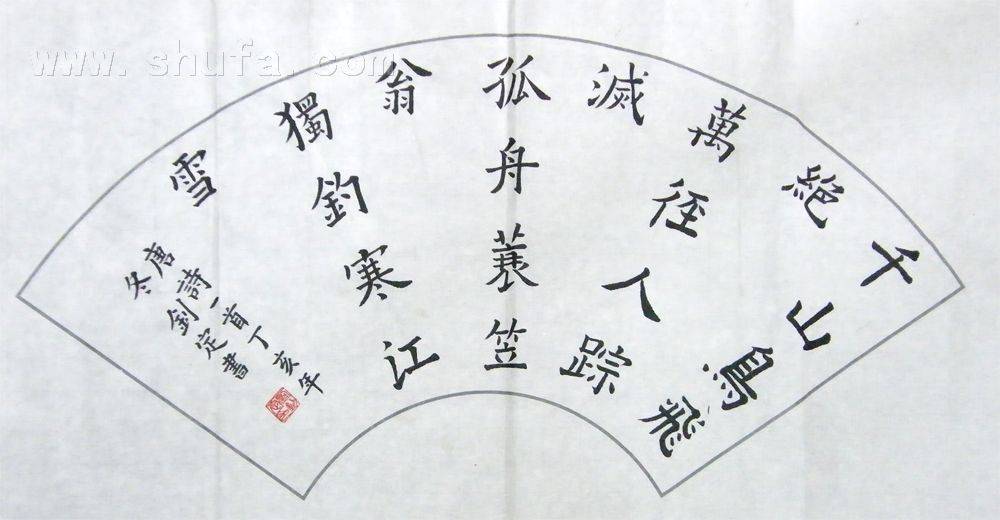 www.shufa.com
千山鳥飛
絶
萬徑人踪
滅
孤舟蓑笠
翁
獨釣寒江
雪
唐詩一首丁亥年
冬釗定書